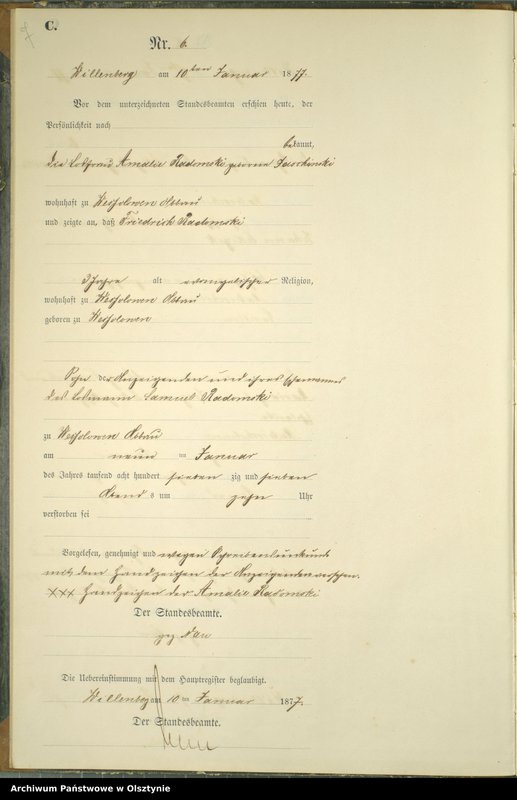 C.
Nr. 6.
Willenberg am 10ten Januar 1877.
Vor dem unterzeichneten Standesbeamten erschien heute, der
Persönlichkeit nach
bekannt,
die Losfrau Amalie Radomski geborene
wohnhaft zu Wessolowen Abbau
und zeigte an, daß Friedrich Radomski
3 Jahre alt evangelischer Religion,
wohnhaft zu Wessolowen Abbau
geboren zu Wessolowen
Sohn der Anzeigenden und ihres Ehemannes
des Losmann Samuel Radomski
zu Wessolowen Abbau
am neun ten Januar
des Jahres tausend acht hundert sieben zig und sieben
Abend s um zehn Uhr
verstorben sei
Vorgelesen, genehmigt und wegen Schreibensunkunde
mit dem Handzeichen der Anzeigenden versehen.
XXX Handzeichen der Amalie Radomski
Der Standesbeamte.
gez.
Die Uebereinstimmung mit dem Hauptregister beglaubigt.
Willenberg am 10 ten Januar 1877.
Der Standesbeamte.
Archiwum Państwowe w Olsztynie